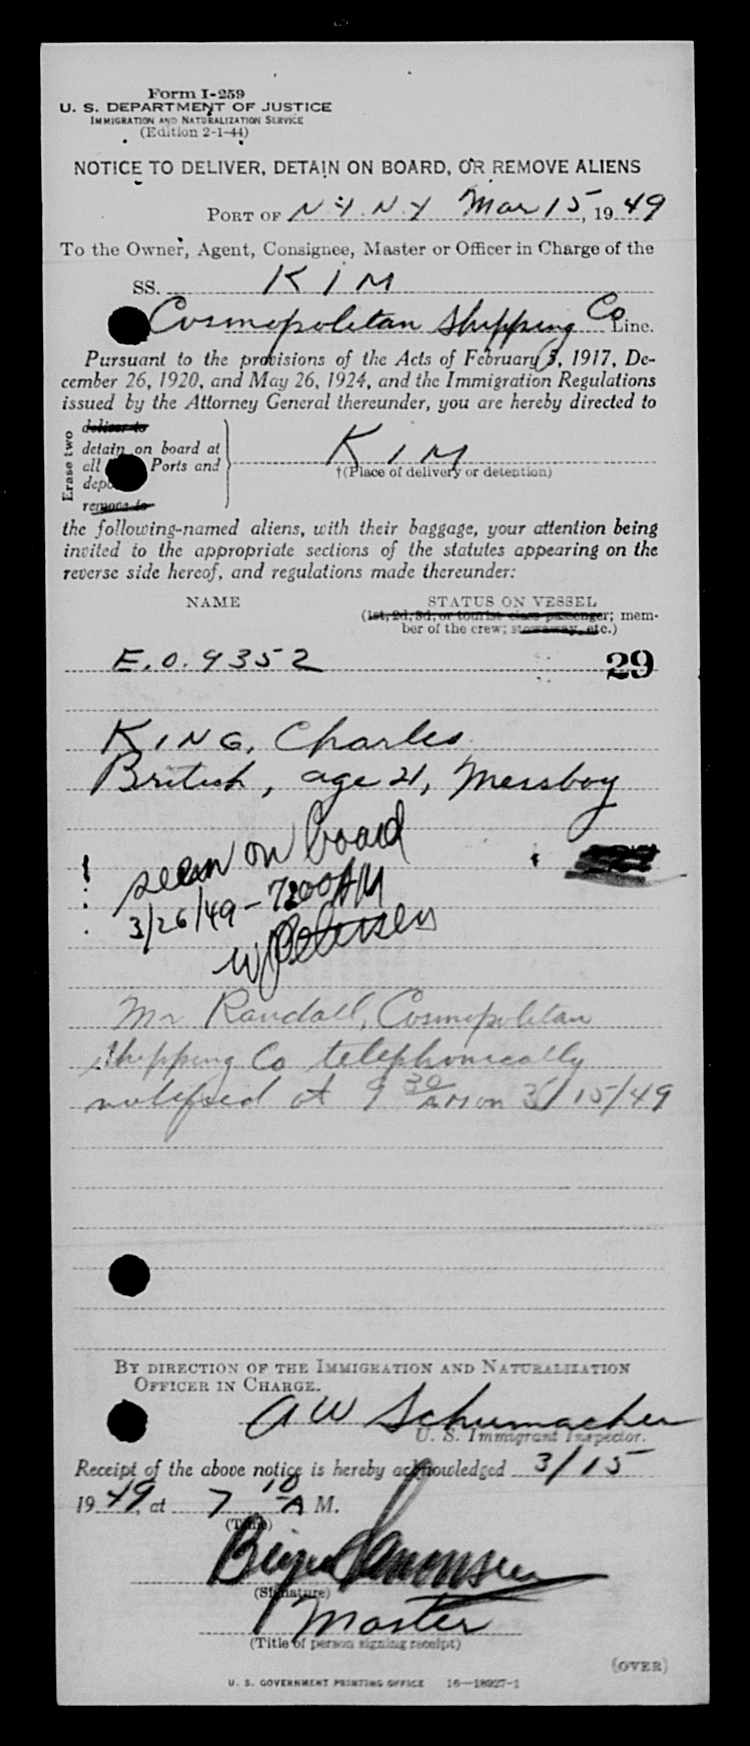 Form I-259
U. S. DEPARTMENT OF JUSTICE
IMMIGRATION AND NATURALIZATION SERVICE
(Edition 2-1-44)
NOTICE TO DELIVER, DETAIN ON BOARD, OR REMOVE ALIENS
PORT OF N.Y. N.Y Mar 15, 1949
To the Owner, Agent, Consignee, Master or Officer in Charge of the
SS. KIM
Cosmopolitan Shipping Co Line.
Pursuant to the provisions of the Acts of February 5, 1917, De-
cember 26, 1920, and May 26, 1924, and the Immigration Regulations
issued by the Attorney General thereunder, you are hereby directed to
Erase two
deliver to
detain on board at
all Ports and
remove to
KIM
†(Place of delivery or detention)
the following-named aliens, with their baggage, your attention being
invited to the appropriate sections of the statutes appearing on the
reverse side hereof, and regulations made thereunder:
NAME STATUS ON VESSEL
(1st, 2d, 3d, or tourist class passenger; mem-
ber of the crew; stowaway, etc.)
E.O. 9352 29
KING, Charles
British, age 21, Messboy
seen on board
3/26/49 - 7200AM
W Petersen
Mr Randall, Cosmopolitan
Shipping Co telephonically
notified at 9 30 AM on 3/15/49
BY DIRECTION OF THE IMMIGRATION AND NATURALIZATION
OFFICER IN CHARGE.
A W Schumacher
U. S. Immigrant Inspector.
Receipt of the above notice is hereby acknowledged 3/15
1949, at 7 10 A M.
(Time)
(Signature)
Master
(Title of person signing receipt)
(OVER)
U. S. GOVERNMENT PRINTING OFFICE 16—18927-1